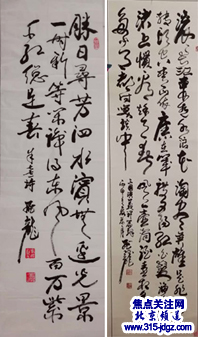 滚滚长江东逝水浪花淘尽英雄是非成败
转头空青山依旧在几度夕阳红白发渔樵江
渚上惯看秋月春风一壶浊酒喜相逢古今
多少事都付笑谈中
胜日寻芳泗水滨无边光景
一时新等闲识得东风面万紫
千红总是春
朱熹诗
焦点关注网
北京频道
www.315-jdgz.com